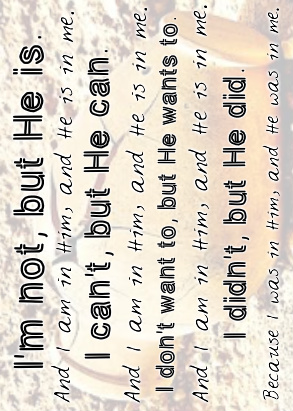 I'm not, but He is.
And I am in Him, and He is in me.
I can't, but He can.
And I am in Him, and He is in me.
I don't want to, but He wants to.
And I am in Him, and He is in me.
I didn't, but He did.
Because I was in Him, and He was in me.